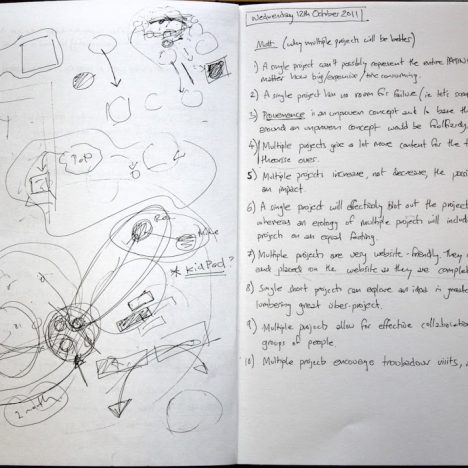 PoP
Mike
* KidPad?
2 months
Wednesday 12th October 2011
Matt (why multiple projects will be better)
1) A single project can't possibly represent the entire
matter how big/expensive/time consuming.
2) A single project has no room for failure (ie let's
3) Provenance is an unproven concept and to base
around an unproven concept would be foolhardy
4) Multiple projects give a lot more content for the
theorise over.
5) Multiple projects increase, not decrease, the
an impact.
6) A single project will effectively blot out the
whereas an ecology of multiple projects will
project on an equal footing.
7) Multiple projects are very website-friendly. They
and placed on the website as they are
8) Single short projects can explore an idea in
lumbering great uber-project.
9) Multiple projects allow for effective
groups of people.
10) Multiple projects encourage troubadour visits,